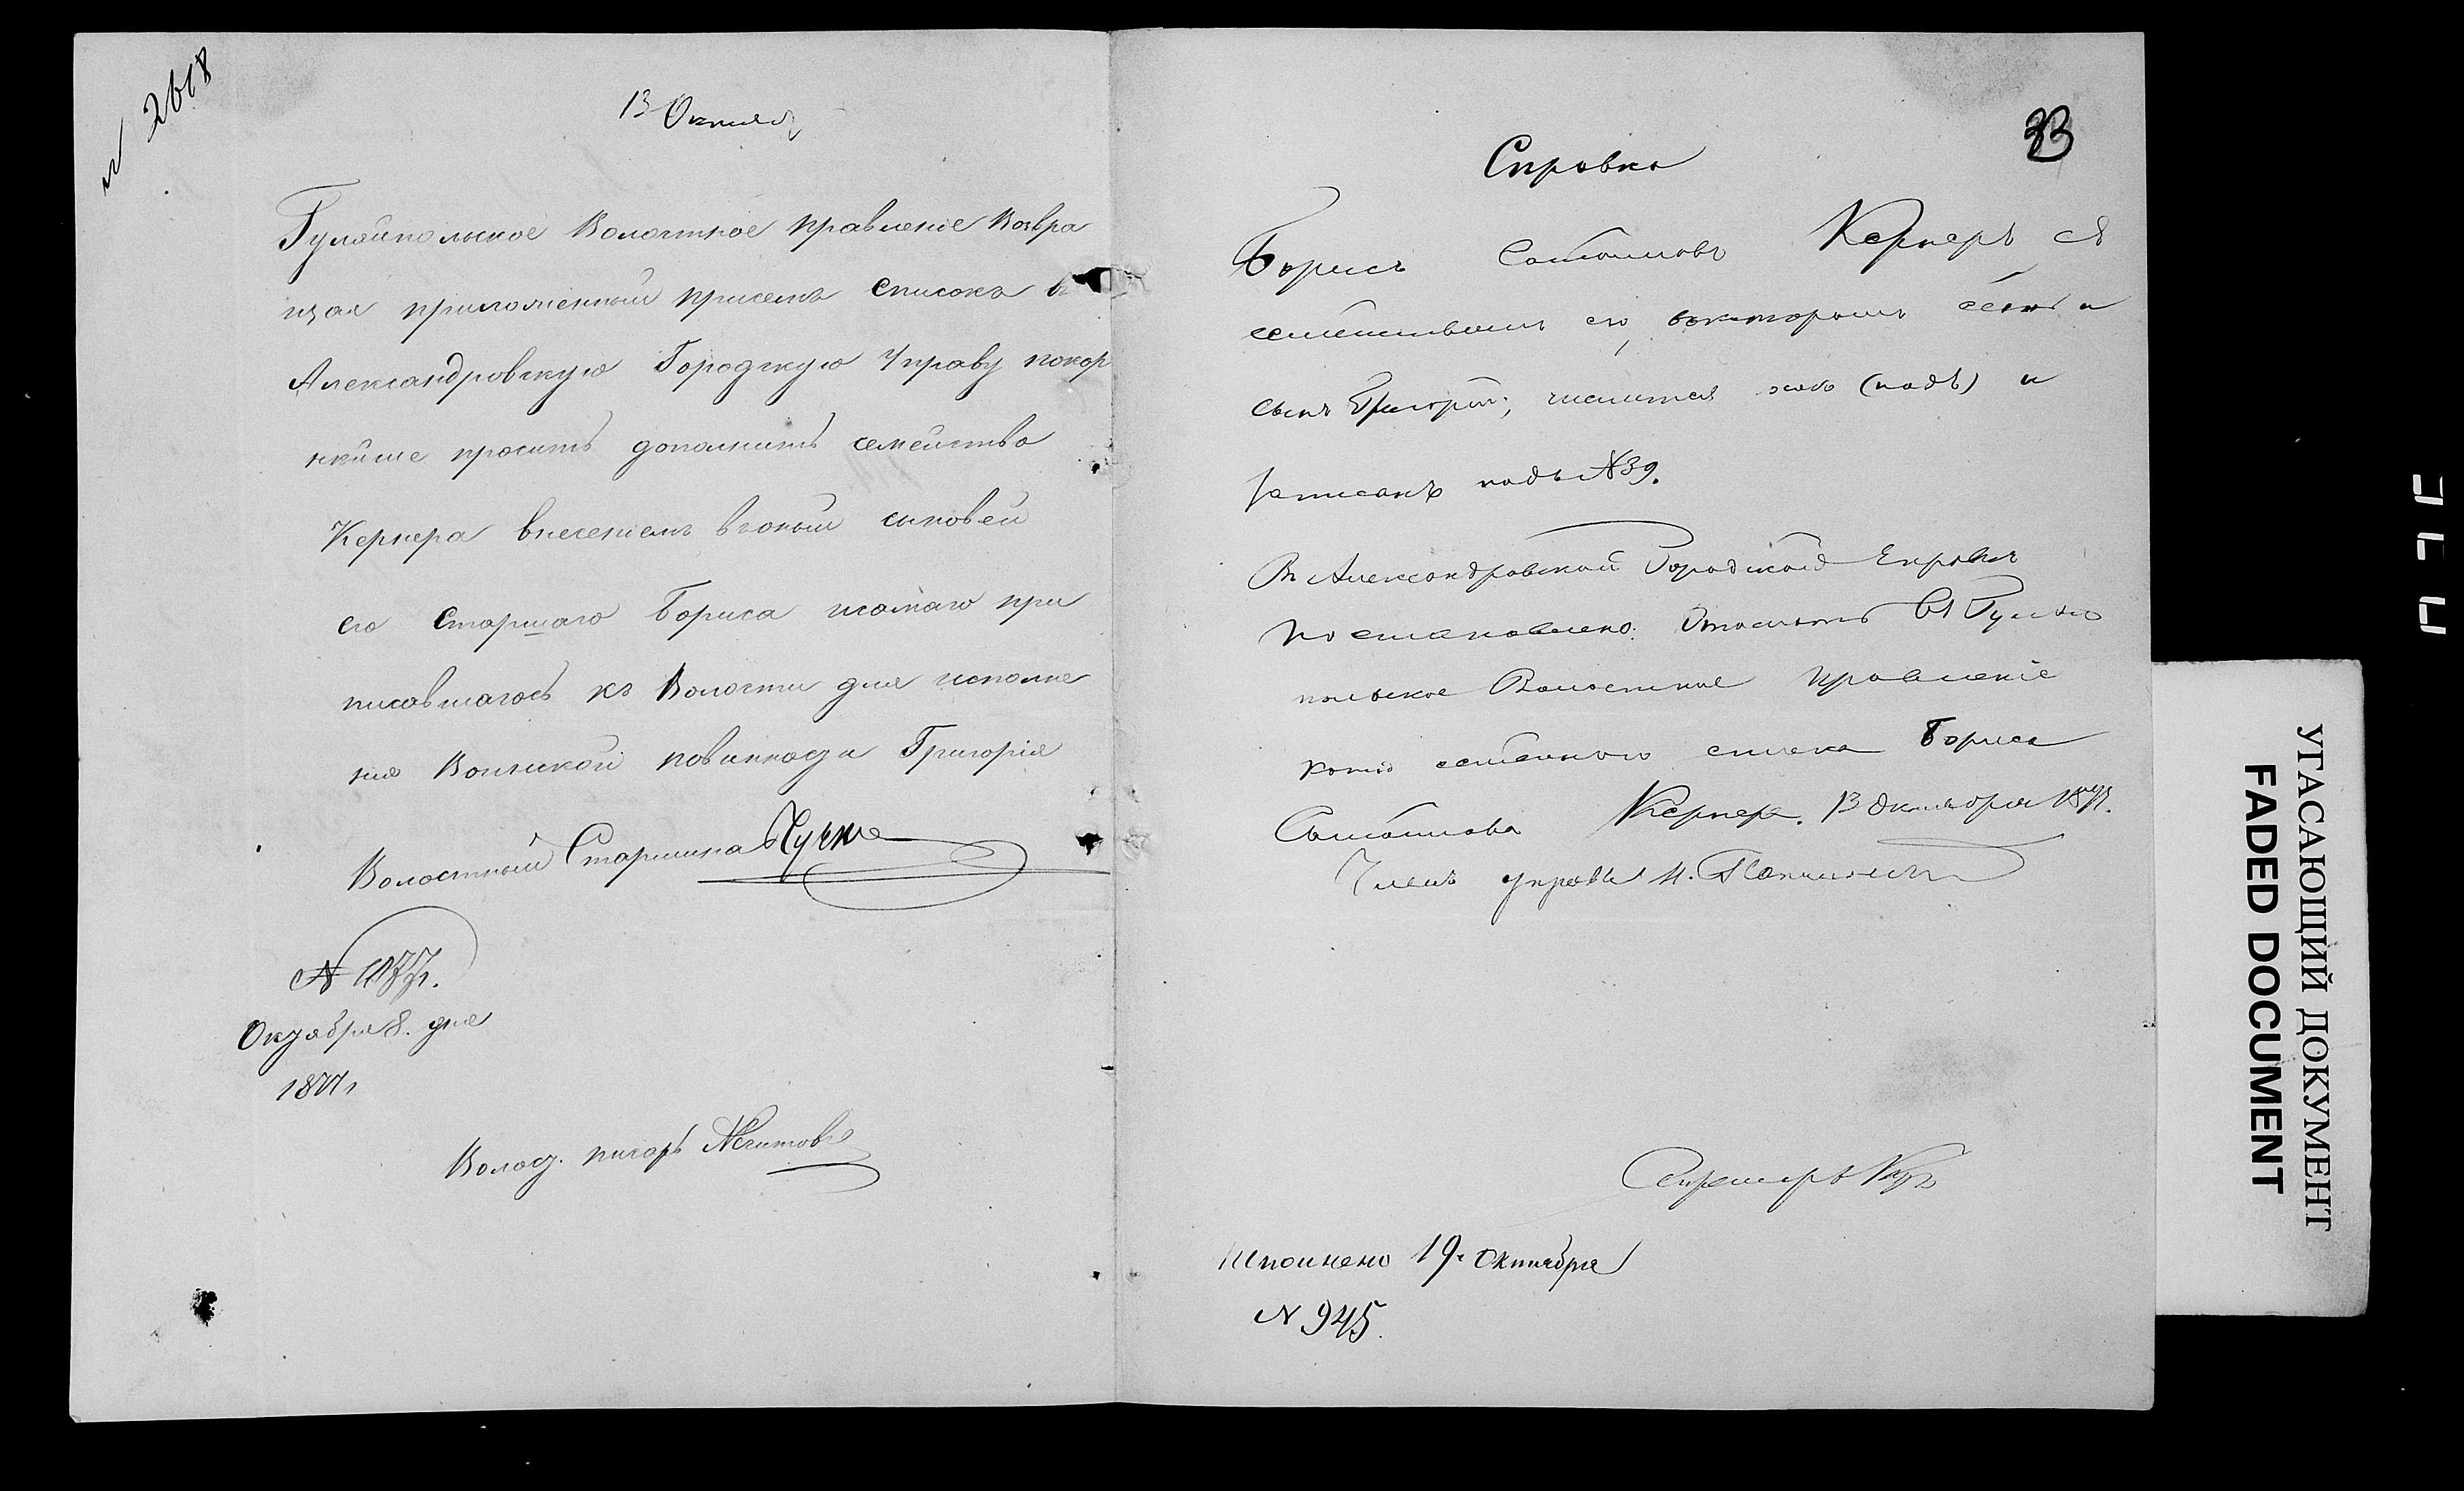 N 2618
13 Октября
Гуляйпольское Волостное правленіе возвра
щая приложенный присемъ списокъ въ
Александровскую Городскую Управу покор
нѣйше проситъ дополнить семейство
Кернера внесеніемъ вконый сыновей
его Старшаго Бориса исамаго при
писавшагось къ Волости для исполне
нія Воинской повинности Григорія
Волостный Старшина
N 1877.
Октября 8. дня
1877 г
Волост. писарь
33
Справка
Борисъ Самойловъ Кернеръ съ
семействомъ его, вкоторомъ есть и
сынъ Григорій, числится особо и
записанъ подъ N 39.
Въ Александровской Городской Управѣ
постановлено: Отослать въ Гуляй
польское Волостное правленіе
копію семейного списка Бориса
Самойлова Кернера. 13 Октября 1877.
Членъ управы
Секретарь
Исполнено 19. Октября
N 945.
УГАСАЮЩИЙ ДОКУМЕНТ
FADED DOCUMENT